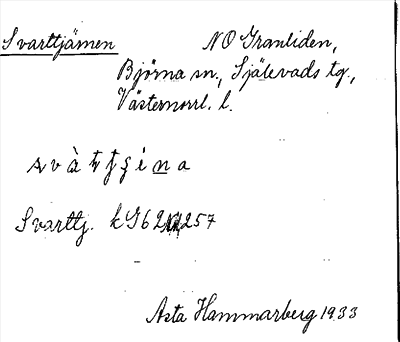 Svarttjämen NO Granliden,
Björna sn., Själevads tg.,
Västernorrl. l.
Svarttj. k G62 257
Asta Hammarberg 1933